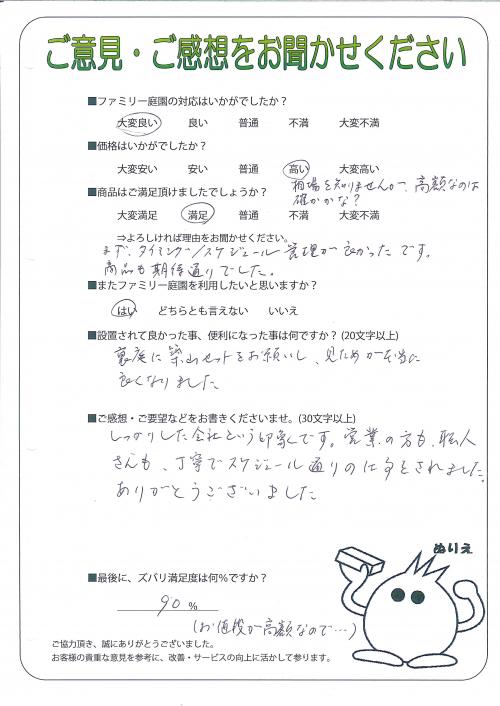 ご意見・ご感想をお聞かせください
■ファミリー庭園の対応はいかがでしたか?
大変良い 良い 普通 不満 大変不満
■価格はいかがでしたか?
大変安い 安い 普通 高い 大変高い
相場を知りませんが、高額なのは
確かかな?
■商品はご満足頂けましたでしょうか?
大変満足 満足 普通 不満 大変不満
⇒よろしければ理由をお聞かせください。
まず、タイミング/スケジュール管理が良かったです。
商品も期待通りでした。
■またファミリー庭園を利用したいと思いますか?
はい どちらとも言えない いいえ
■設置されて良かった事、便利になった事は何ですか? (20文字以上)
裏庭に築山セットをお願いし、見ためが本当に
良くなりました
■ご感想・ご要望などをお書きくださいませ。(30文字以上)
しっかりした会社という印象です。営業の方も、職人
さんも、丁寧でスケジュール通りの仕事をされました。
ありがとうございました
ぬりえ
■最後に、ズバリ満足度は何%ですか?
90 %
(お値段が高額なので…)
ご協力頂き、誠にありがとうございました。
お客様の貴重な意見を参考に、改善・サービスの向上に活かして参ります。